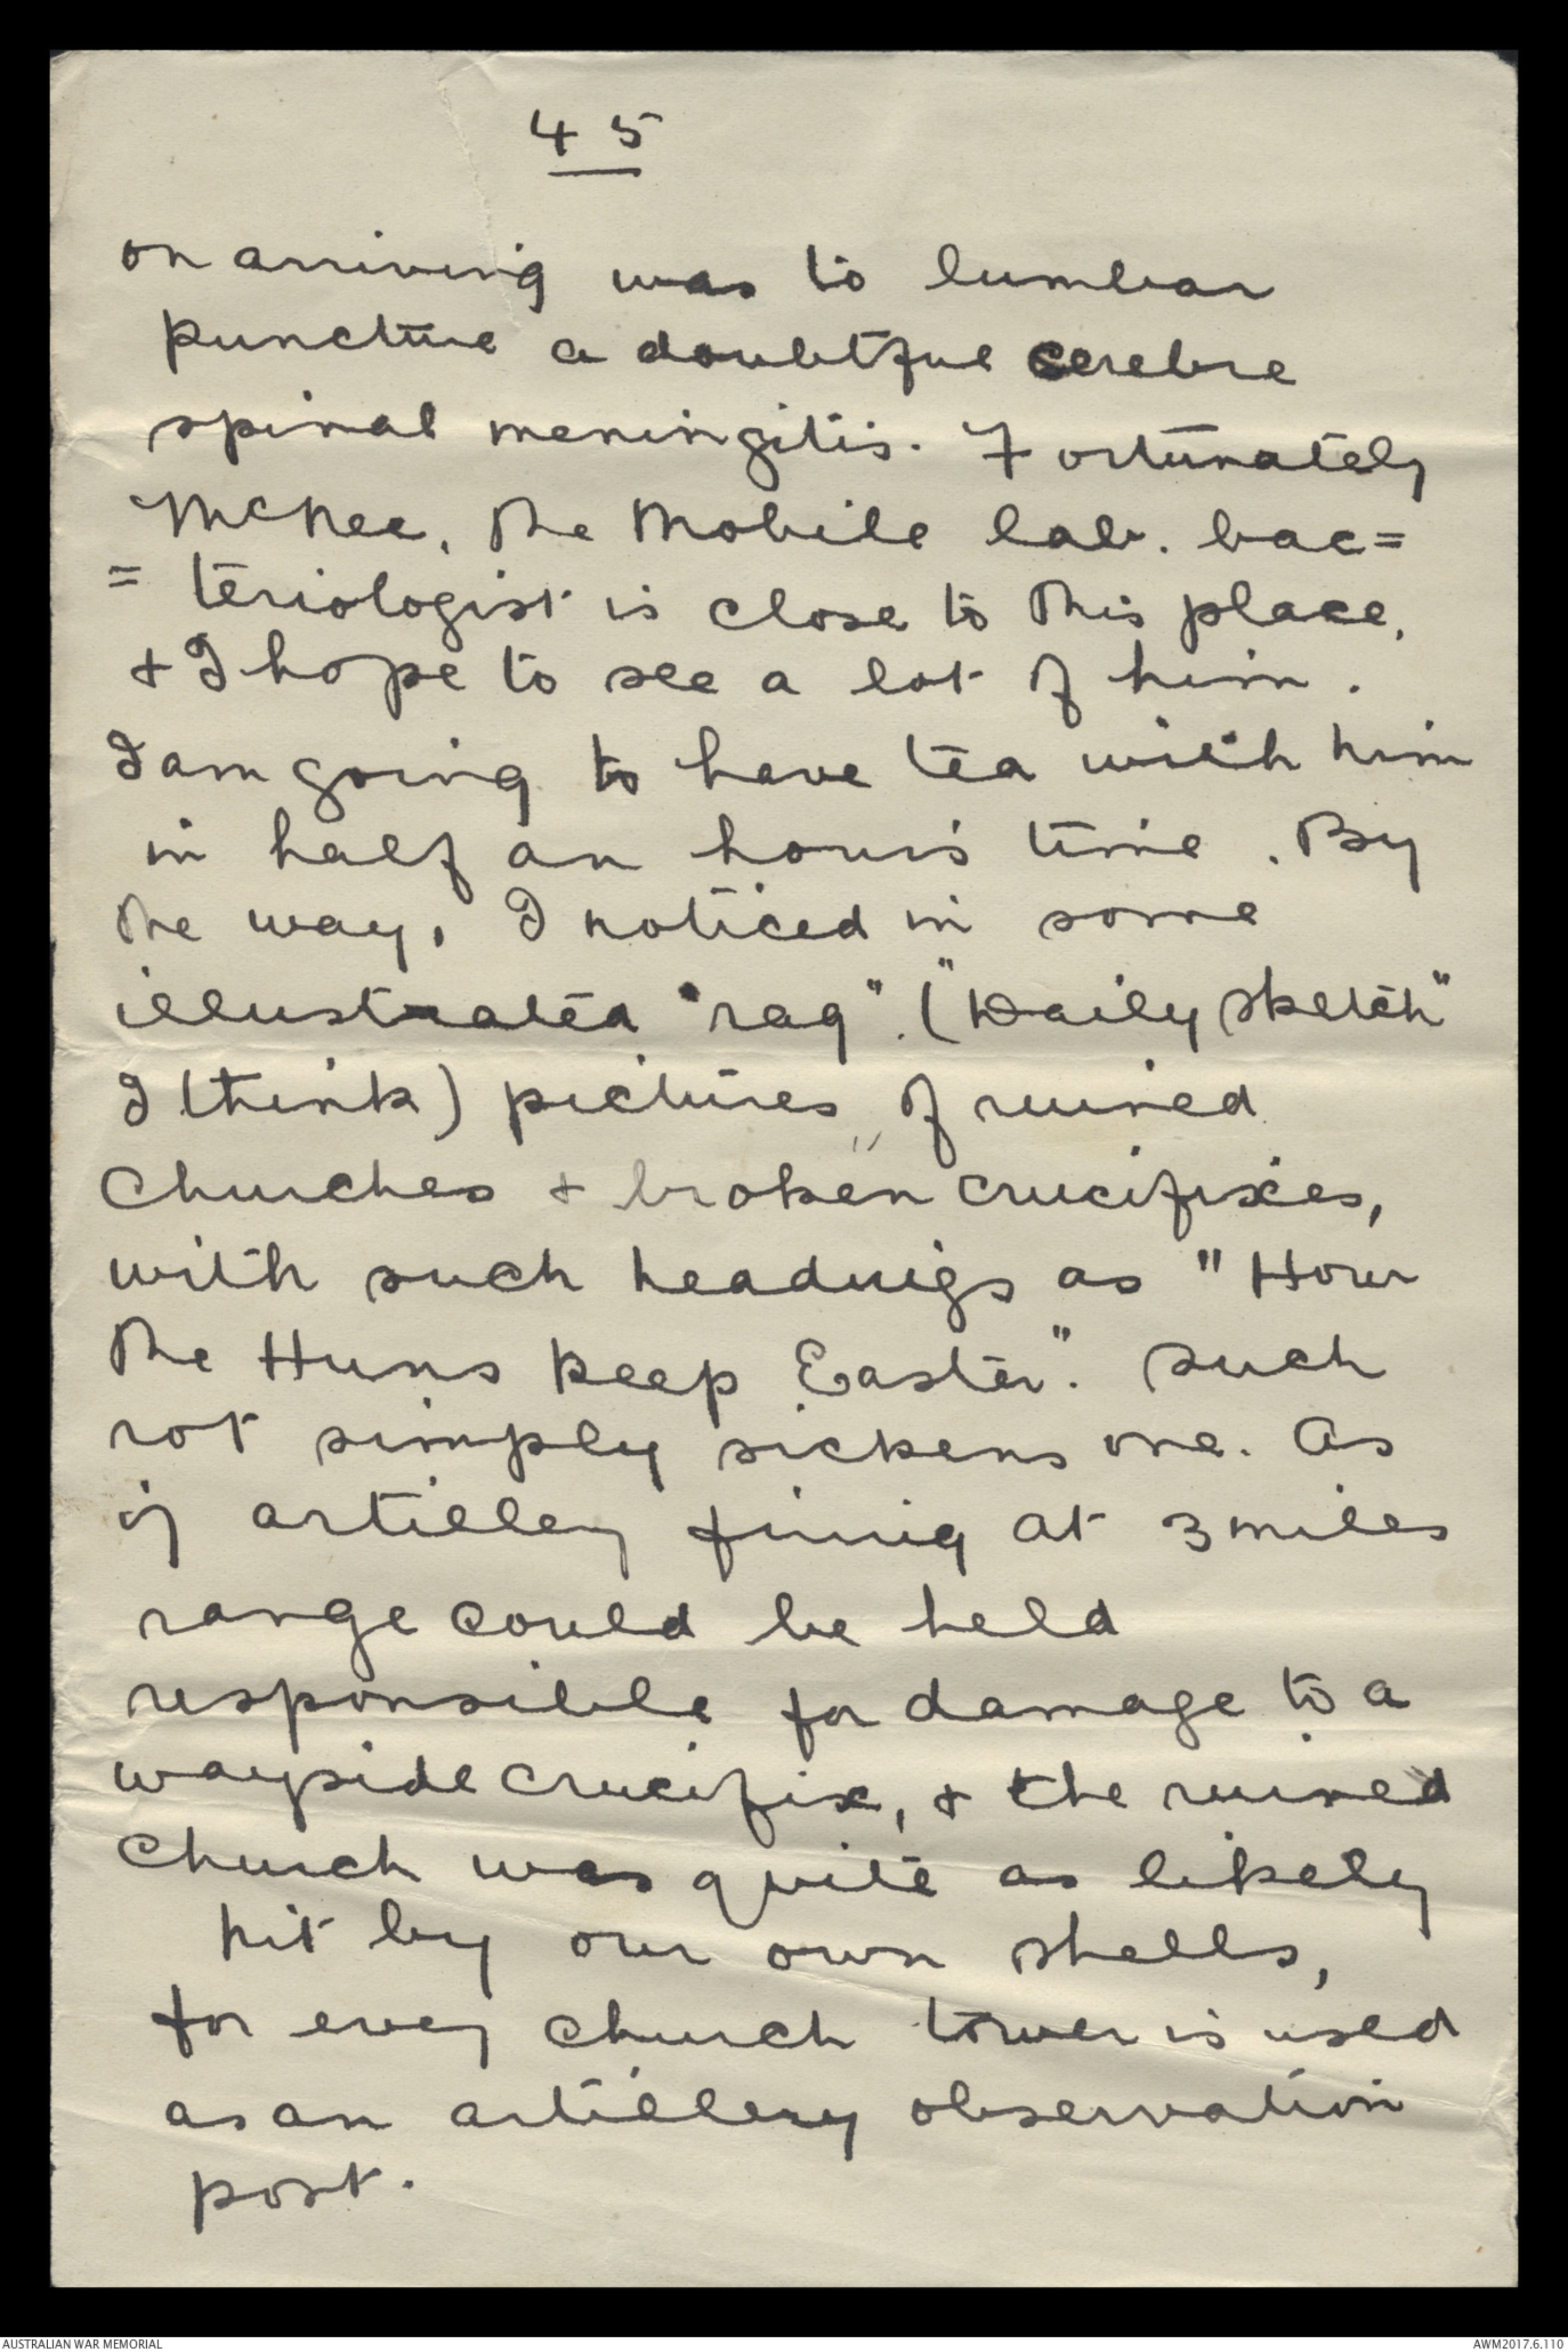 4 5
on arriving was to lumbar
puncture a doubtful cerebre
spinal meningitis. Fortunately
McNee, the Mobile lab. bac=
= teriologist is close to this place,
+ I hope to see a lot of him.
I am going to have tea with him
in half an hour's time. By
the way, I noticed in some
illustrated "rag". ("Daily Sketch"
I think) pictures of ruined
Churches + broken crucifixes,
with such headings as "How
the Huns keep Easter". Such
rot simply sickens one. As
if artillery firing at 3 miles
range could be held
responsible for damage to a
wayside crucifix, + the ruined
Church was quite as likely
hit by our own shells,
for every church tower is used
as an artillery observation
post.
AUSTRALIAN WAR MEMORIAL
AWM2017.6.110